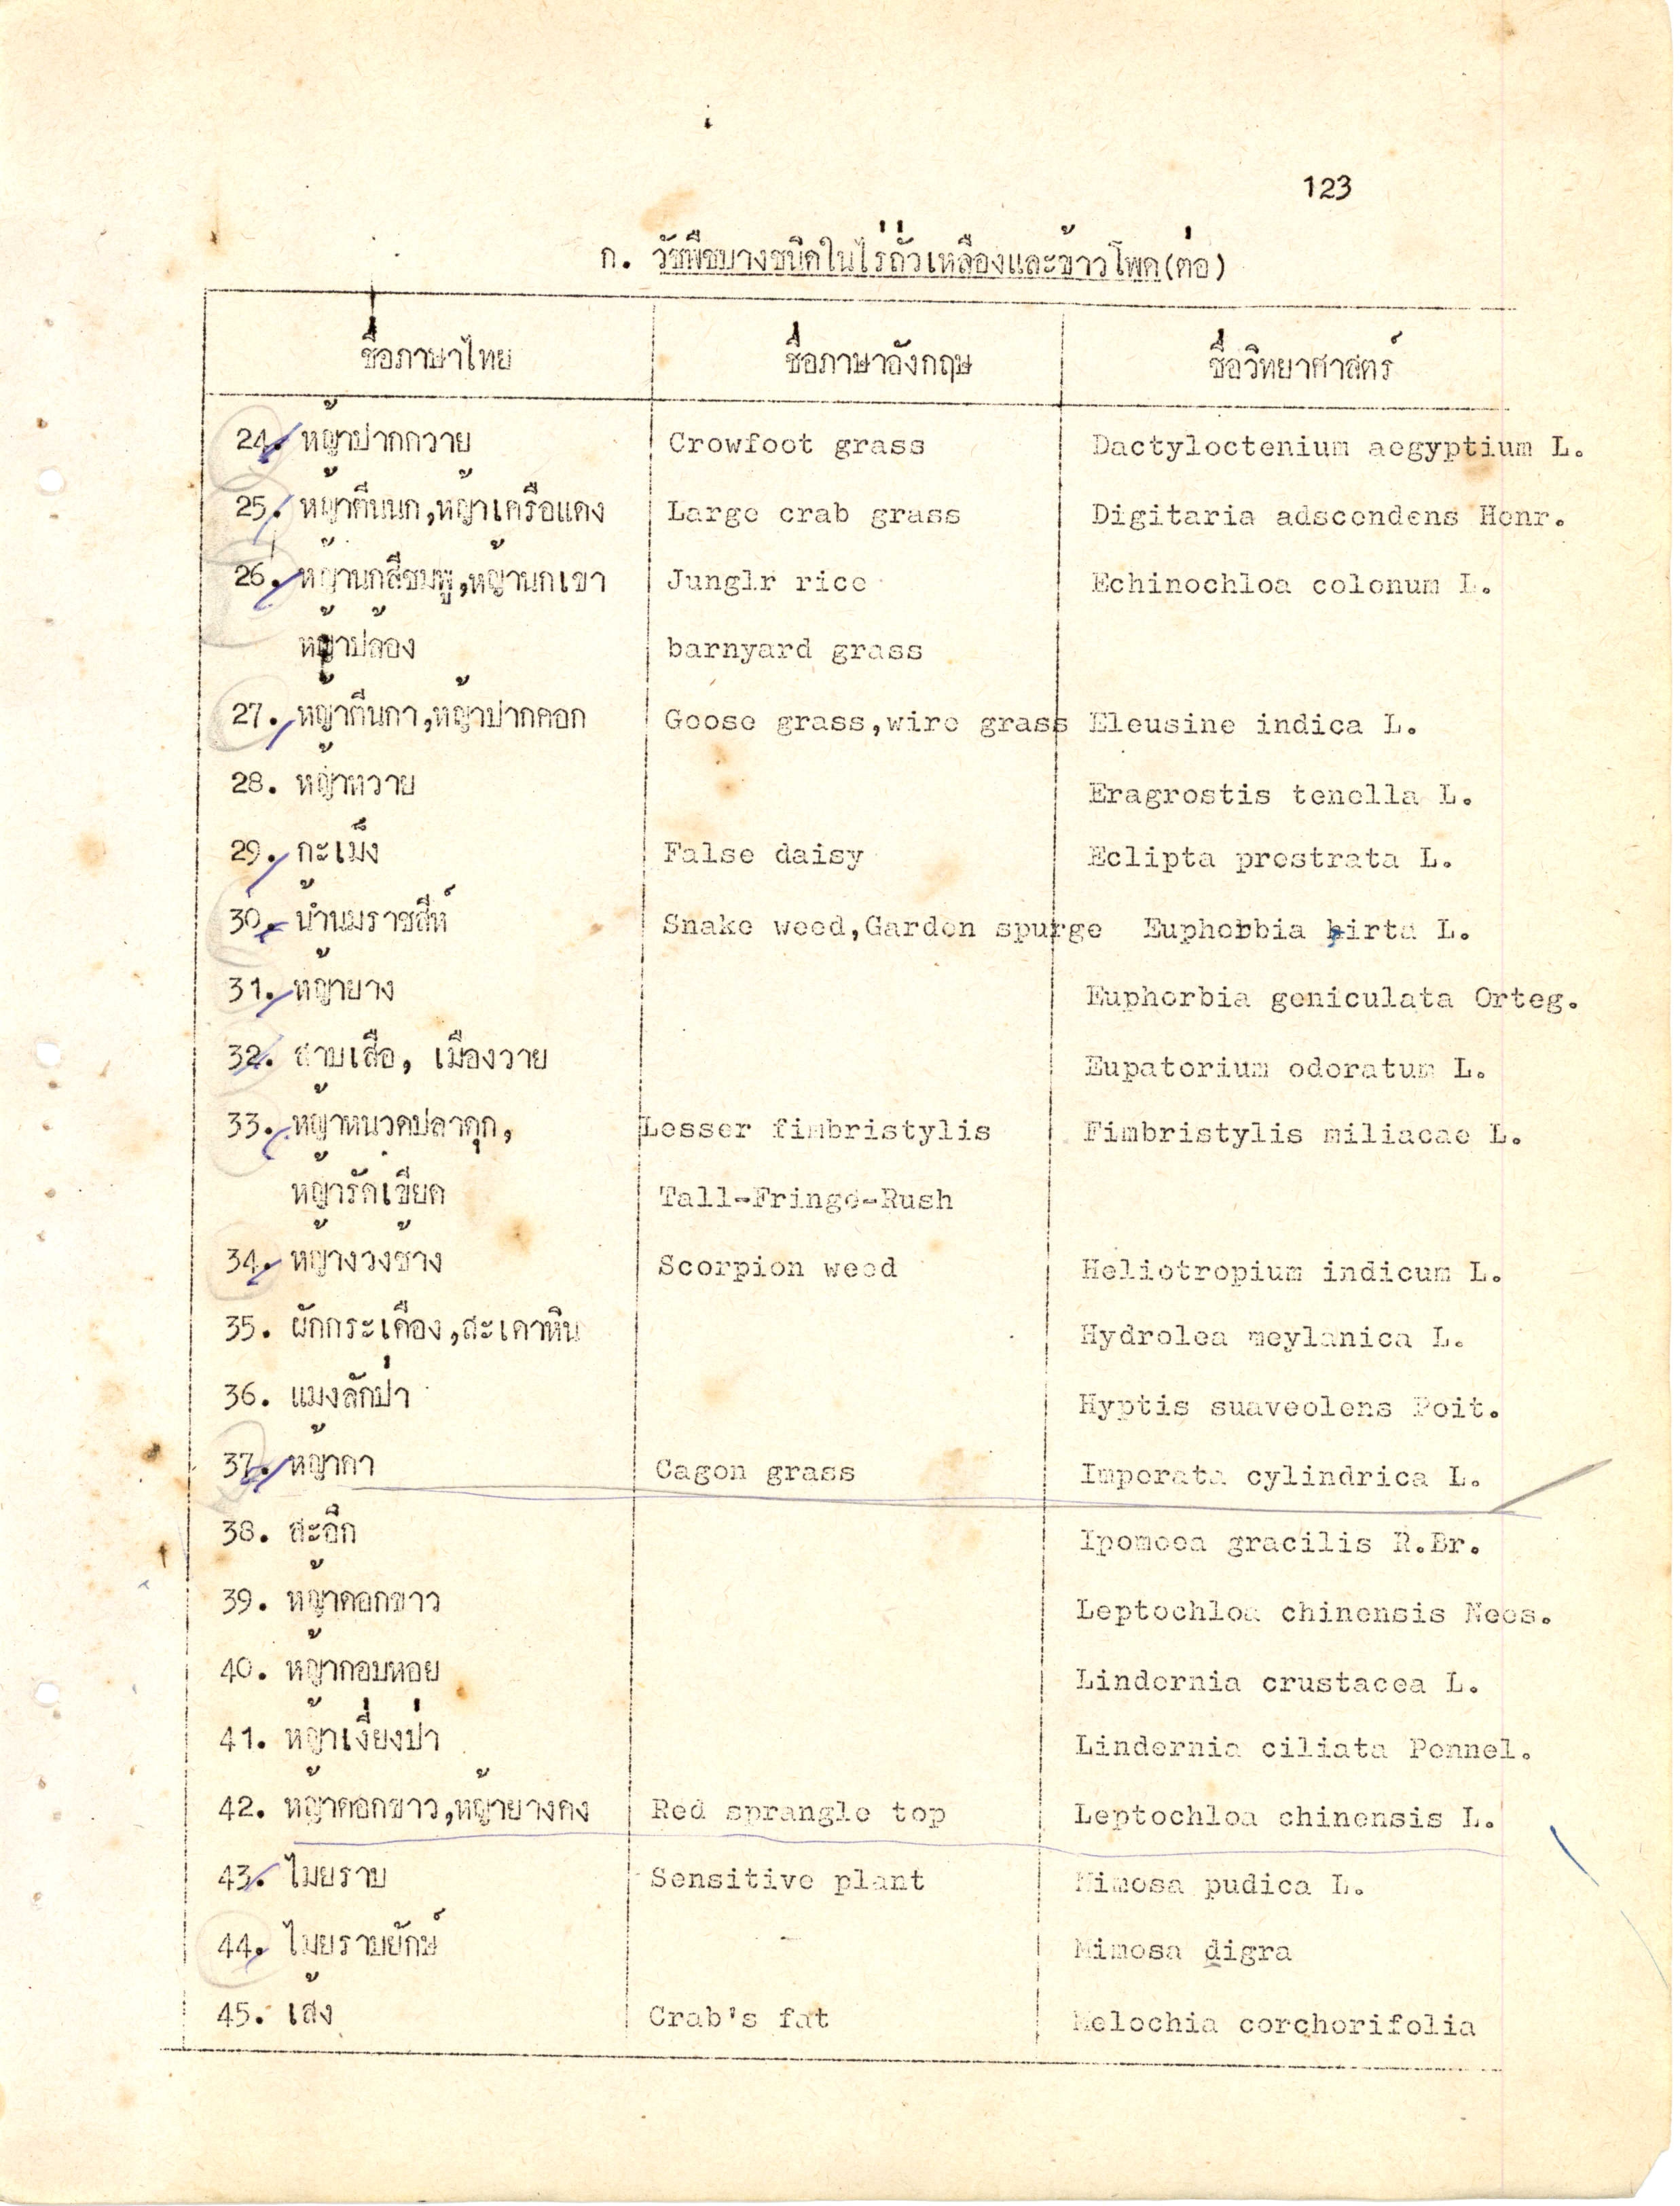 123
ก. วัชพืชบางชนิดในไร่ถั่วเหลืองและข้าวโพด(ต่อ)
ชื่อภาษาไทย ชื่อภาษาอังกฤษ ชื่อวิทยาศาสตร์
24. หญ้าปากกวาย Crowfoot grass Dactyloctenium aegyptium L.
25. หญ้าตีนนก,หญ้าเครือแดง Large crab grass Digitaria adscendens Henr.
26. หญ้านกสีชมพู,หญ้านกเขา Junglr rice Echinochloa colonum L.
หญ้าปล้อง barnyard grass
27. หญ้าตีนกา,หญ้าปากคอก Goose grass,wire grass Eleusine indica L.
28. หญ้าหวาย Eragrostis tenella L.
29. กะเม็ง False daisy Eclipta prostrata L.
30. น้ำนมราชสีห์ Snake weed,Garden spurge Euphorbia hirta L.
31. หญ้ายาง Euphorbia geniculata Orteg.
32. สาบเสือ, เมืองวาย Eupatorium odoratum L.
33. หญ้าหนวดปลาดุก, Lesser fimbristylis Fimbristylis miliacae L.
หญ้ารัดเขียด Tall-Fringe-Rush
34. หญ้างวงช้าง Scorpion weed Heliotropium indicum L.
35. ผักกระเดือง,สะเดาหิน Hydrolea meylanica L.
36. แมงลักป่า Hyptis suaveolens Poit.
37. หญ้าคา Cagon grass Imperata cylindrica L.
38. สะอึก Ipomoea gracilis R.Br.
39. หญ้าดอกขาว Leptochloa chinensis Nees.
40. หญ้ากอบหอย Lindernia crustacea L.
41. หญ้าเงี่ยงป่า Lindernia ciliata Pennel.
42. หญ้าดอกขาว,หญ้ายางดง Red sprangle top Leptochloa chinensis L.
43. ไมยราบ Sensitive plant Mimosa pudica L.
44. ไมยราบยักษ์ - Mimosa digra
45. เส้ง Crab's fat Melochia corchorifolia